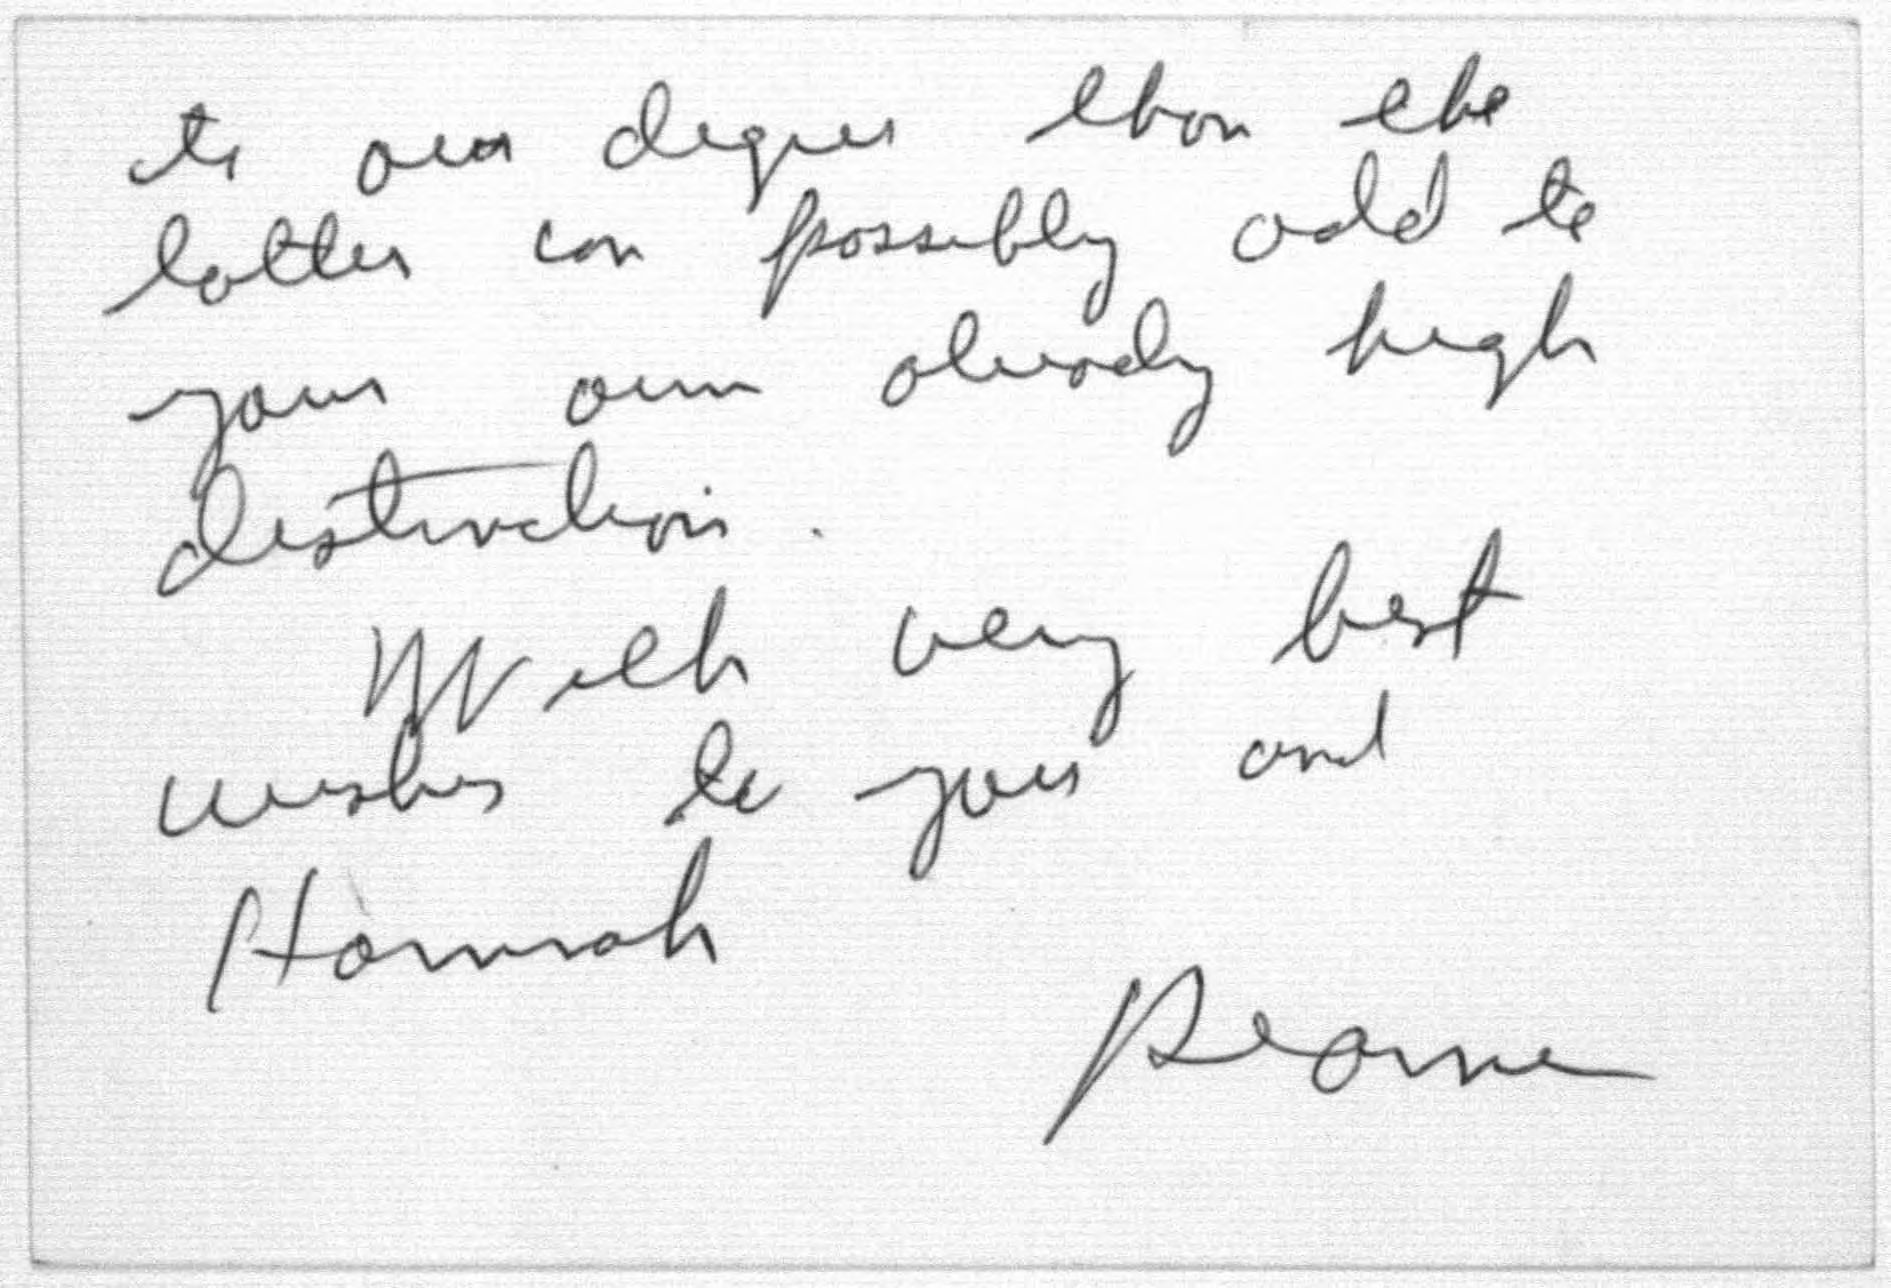 to our degree than the
latter can possibly add to
your own already high
distinction.
With very best
wishes to you and
Hannah